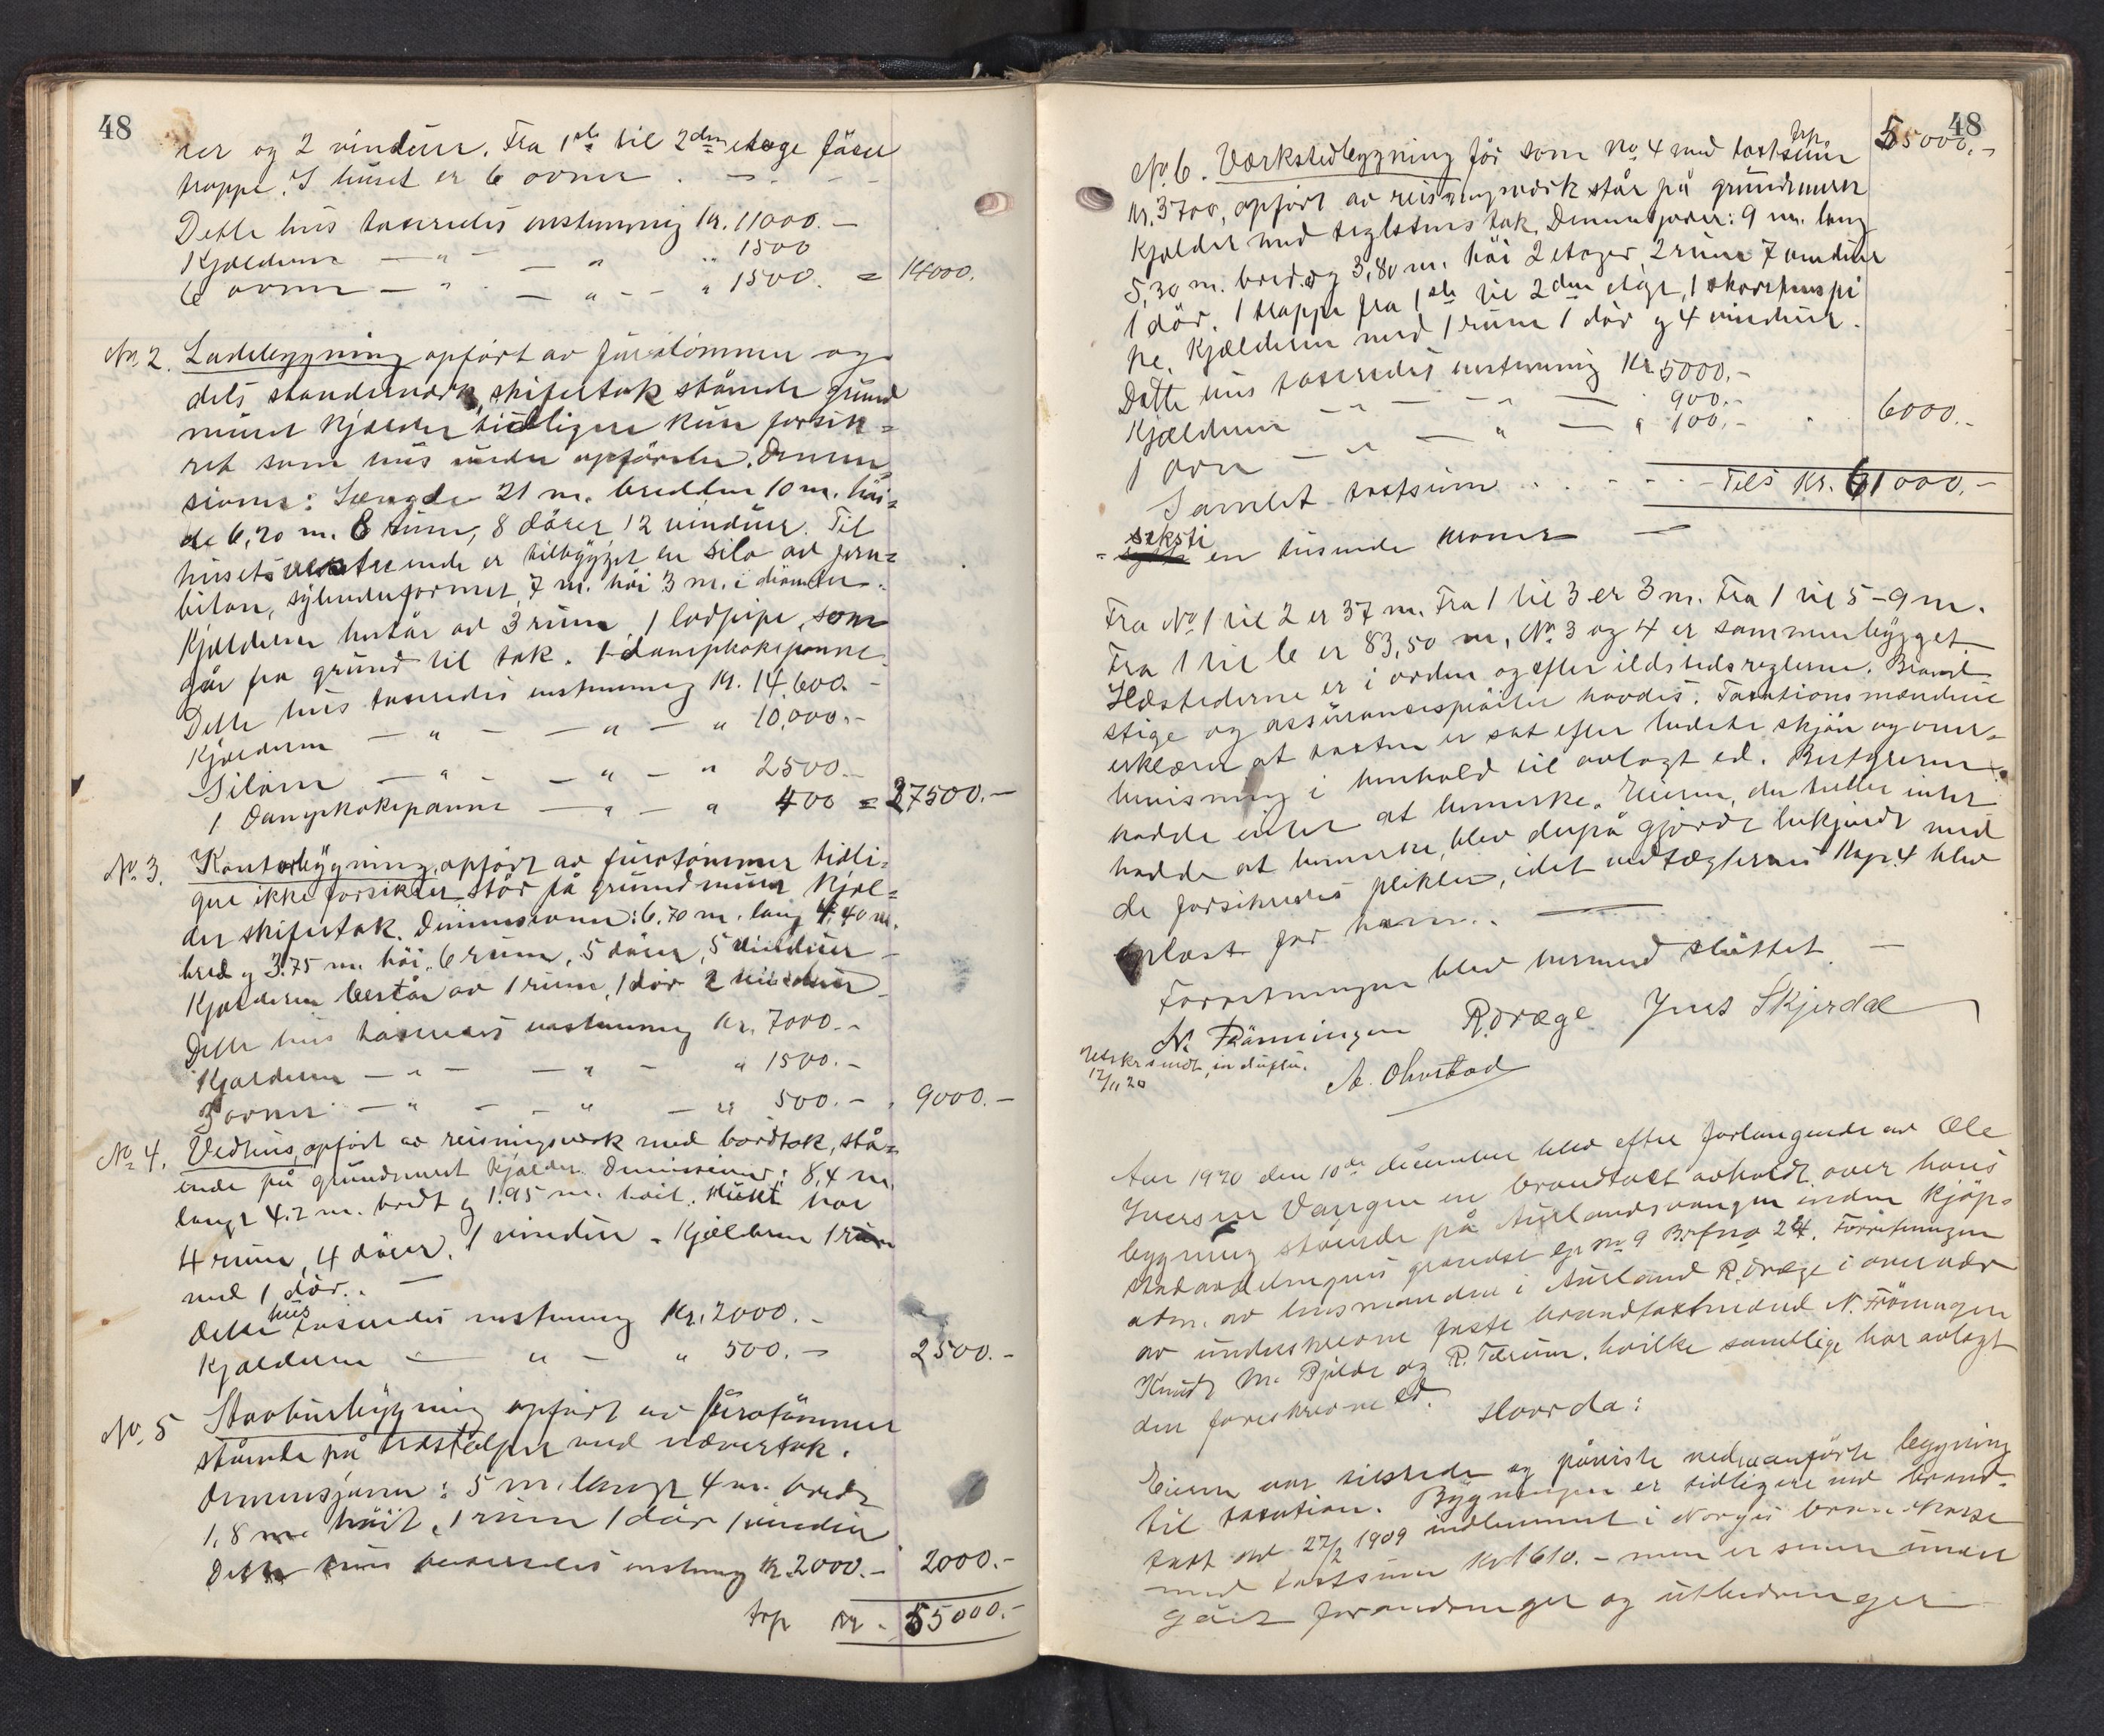 48
rer og 2 vinduer. Fra 1ste til 2den etage fören
trappe. I huset er 6 ovner . — . — —
Dette hus taxeredes enstemmig Kr. 11000.—
Kjælderen — " — — " " 1500
6 ovner — " — — " — — " 1500. = 14000.
No. 2. Ladebygning opført av furutömmer og
dels standerverk, skifertak stående grund
muret kjælder tidligere kun forsik=
ret som hus under opförelse. Dimen
sioner: Længde 21 m. bredden 10 m. höi=
de 6,20 m. 8 rum, 8 dörer 12 vinduer. Til
husets vestre ende er tilbygget en silo av jern=
beton, sylinderformet 7 m. höi 3 m. i diameter.
Kjælderen består av 3 rum, 1 lodpipe, som
går fra grund til tak. 1 dampkokepanne.
Dette hus taxeredes enstemmig Kr. 14.600.—
Kjælderen — " — — " — " 10.000.—
Siloen — " — — " — " 2500.—
1 Dampkokepanne — " — " 400 = 27500.—
No. 3. Kontorbygning, opført av furutömmer tidli=
gere ikke forsikret står på grundmuret kjæl=
der skifertak. Dimensioner: 6.70 m. lang 4.40 m.
bred og 3.75 m. höi. 6 rum, 5 dörer, 5 vinduer —
Kjælderen består av 1 rum, 1 dör 2 vinduer
Dette hus taxeredes enstemmig Kr. 7000.—
Kjælderen — " — — " — " 1500.—
3 ovner — " — — " — " 500.— . 9000.—
No. 4. Vedhus, opført av reisningsverk med bordtak, stå=
ende på grundmuret kjælder. Dimensioner: 8,4 m.
langt 4.2 m. bredt og 1.95 m. höit. Huset har
4 rum, 4 dörer, 1 vindu. Kjælderen 1 rum
med 1 dör. —
Dette hus taxeredes enstemmig Kr. 2000.—
Kjælderen — " — " 500.— 2500.—
No. 5 Stavbursbygning opført av furutömmer
stående på træstolper med nævertak.
Dimensjoner: 5 m. langt 4 m. bredt
1,8 m. höit, 1 rum 1 dör 1 vindu
Dette hus taxeredes enstemmig Kr. 2000.— 2000.—
trp kr. 55000.—
48
trp. 55000.—
No. 6. Værkstedbygning för som No. 4 med taxtsum
Kr. 3700, opført av reisningsverk står på grundmuret
kjælder med teglstens tak. Dimensjoner: 9 m. lang
5,30 m. bred og 3,80 m. höi 2 etager, 2 rum 7 vinduer
1 dör. 1 trappe fra 1ste til 2den etage, 1 skorstenspi
pe. Kjælderen med 1 rum 1 dör og 4 vinduer.
Dette hus taxeredes enstemmig Kr 5000.—
Kjælderen — " — — " — " 900.—
1 ovn — " — — " — " 100.— . 6000.—
Samlet taxtsum . . . . . — Tils kr. 61000.—
seksti
= en tusinde kroner —
Fra No. 1 til 2 er 37 m. Fra 1 til 3 er 3 m. Fra 1 til 5 – 9 m.
Fra 1 til 6 er 83,50 m, No. 3 og 4 er sammenbygget.
Ildstederne er i orden og efter ildstedsreglerne. Brand
stige og assurancespröite havdes. Taxtionsmændene
erklærer at taxten er sat efter bedste skjön og over=
bevisning i henhold til avlagt ed. Bestyreren
hadde intet at bemerke. Eieren, der heller intet
hadde at bemerke, blev derpå gjordt bekjendt med
de forsikredes plikter, idet vedtægternes Kap. 4 blev
oplæst for ham. —
Forretningen blev hermed sluttet. —
N. Fränningen R. Dræge Jens Skjerdal
A. Ohnstad
Utskr sendt, in duplo.
12/11 20
Aar 1920 den 10de december blev efter forlangende av Ole
Iversen Vangen en brandtaxt avholdt over hans
bygning stående på Aurlandsvangen inden kjöp=
stadavdelingens grændse g. no 9 B. no 24. Forretningen
adm. av lensmanden i Aurland R. Dræge i overvær
av underskrevne faste brandtaxtmænd N. Fröningen
Knudt M. Bjelde og R. Tærum, hvilke samtlige har avlagt
den foreskrevne ed. Hvorda:
Eieren var tilstede og påviste nedenanförte bygning
til taxation. Bygningen er tidligere ved brand=
taxt av 27/2 1909 indlemmet i Norges brandkasse
med taxtsum kr 1610.— men er senere under
gåt forandringer og utbedringer